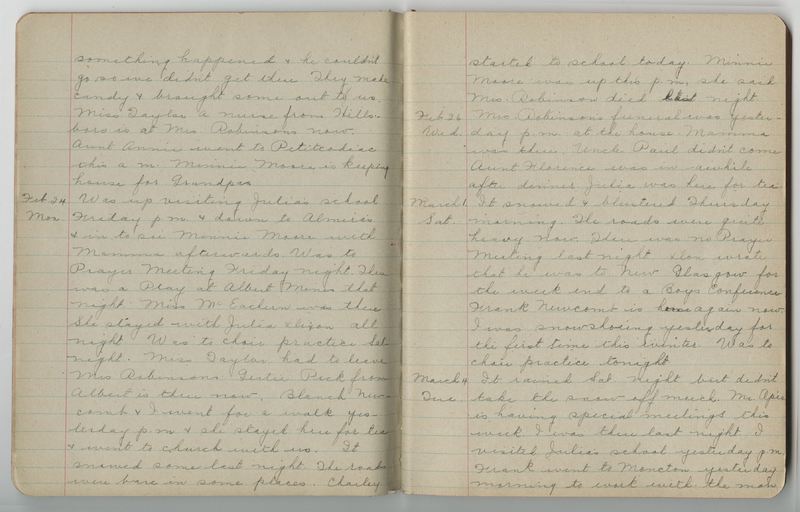 something happened & he couldn't
go so we didnt get there They made
candy & brought some out to us.
Miss Taylor a nurse from Hills-
boro is at Mrs Robinsons now.
Aunt Annie went to Petitcodiac
this a.m. Minnie Moore is keeping
house for Grandpa
Feb. 24 Was up visiting Julia's school
Mon Friday p.m. & down to Almeda's
& in to see Minnie Moore with
Mamma afterwards. Was to
Prayer Meeting Friday night. There
was a Play at Albert Mines that
night. Miss McEachern was there
She stayed with Julia all
night. Was to choir practice Sat
night. Miss Taylor had to leave
Mrs Robinsons Gertie Peck from
Albert is there now, Blanch New-
comb & I went for a walk yes-
terday p.m. & she stayed here for tea
& went to church with us. It
snowed some last night The roads
were bare in some places. Charley
started to school today. Minnie
Moore was up this p.m. she said
Mrs. Robinson died last night
Feb 26 Mrs Robinsons funeral was yester-
Wed. day p.m. at the house. Mamma
was there. Uncle Paul didn't come
Aunt Florence was in awhile
after dinner Julia was here for tea
March 1 It snowed & blustered Thursday
Sat. morning. The roads were quite
heavy now. There was no Prayer
Meeting last night. wrote
that he was to New Glasgow for
the week end to a Boys Conference
Frank Newcomb is home again now
I was snowshoeing yesterday for
the first time this winter. Was to
choir practice tonight
March 4 It rained Sat. night but didn't
Tue take the snow off much. Mr.
is having special meetings this
week. I was there last night I
visited Julia's school yesterday p.m.
Frank went to Moncton yesterday
morning to work with the man